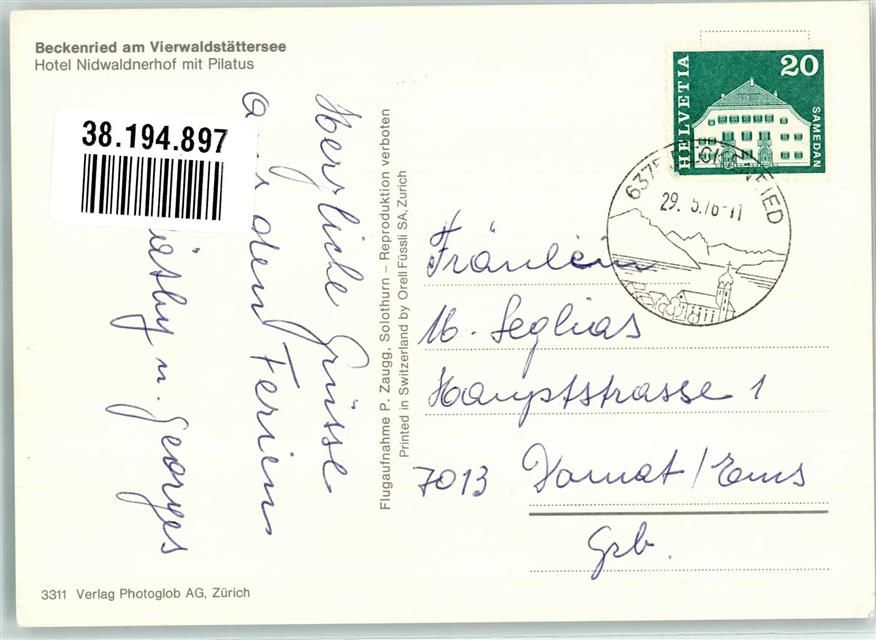 Beckenried am Vierwaldstättersee
Hotel Nidwaldnerhof mit Pilatus
38.194.897
Herzliche Grüsse
den Ferien
u. Georges
Flugaufnahme P. Zaugg, Solothurn – Reproduktion verboten
Printed in Switzerland by Orell Füssli SA, Zurich
HELVETIA
20
SAMEDAN
6375 BECKENRIED
29. 5.76-11
Fräulein
M. Seglias
Hauptstrasse 1
7013 Domat/Ems
Grb.
3311 Verlag Photoglob AG, Zürich